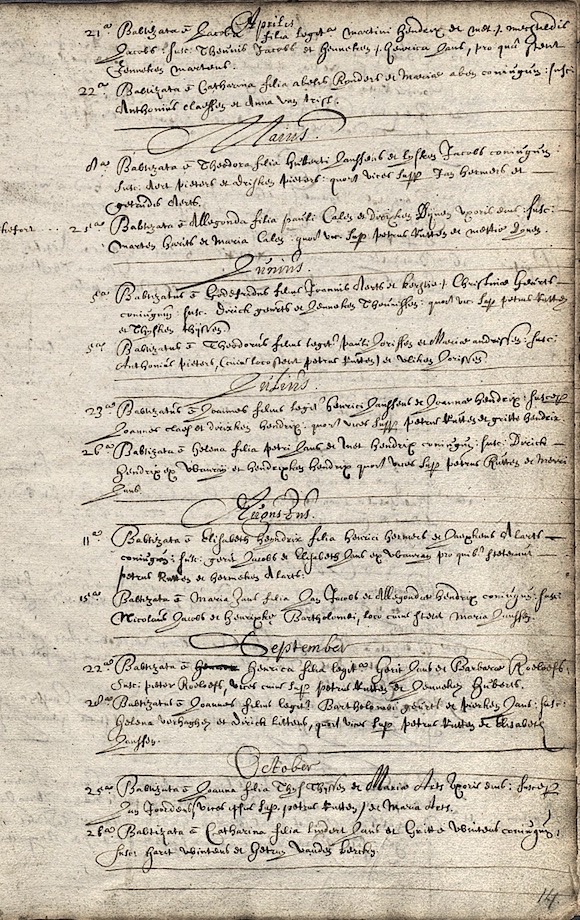 Aprilis
21a Babtizata e Jacoba filia legit martini Hendrix et
Jacobs: susc: Theunis Jacobs et Henneken Henrica Jans, pro qua stetit
Jenneken martens.
22a Babtizata e Catharina filia abelis Rynders et Mariae abers coniugum: susc:
Anthonius claessen et Anna van trist.
Maius.
8a Babtizata e Theodora filia Huberti Janssens et lysken Jacobs coniugum
susc: Aert pieters et driesken pieters: quor vices supp Jan Hermens et
Getrudis Aerts.
21a Babtizata e Allegonda filia pauli Cales et dorixken uxoris eius: susc:
Marten Harits et Maria Cales: quor vic: sup petrus Rutten et
Junius.
5a Babtizatus e Godefridus filius Joannis Aerts et Christina Geurts
coniugum susc: Dirick geurts et Jenneken Theunissen: quor vic: sup petrus Rutten
et Thysken thyssen
5a Babtizatus e Theodorus filius legit pauli Jorissen et Mariae andriessen: susc:
Anthonius pieters, (cuius loco stetit petrus Rutten) et Jorissen
Julius.
23a Babtizatus e Joannes filius legit henrici Janssens et Joannae Hendrix: suscep
Joannes claes et dorixken Hendrix: quor vices supp petrus Rutten et gritto Hendrix
26a Babtizata e Helena filia petri Jans et Hendrix coniugum: susc: Dirick
Hendrix ex et Hendrixken Hendrix quor vices supp petrus Rutten et
Jans.
Augustus.
11a Babtizata e Elisabeth Hendrix filia henrici hermens et Alarts
coniugum: susc: gerit Jacobs et Elisabeth Jans ex pro quib steterunt
petrus Rutten et Hermeken Alarts.
15a Babtizata e Maria Jans filia Jan Jacobs et Allegondae Hendrix coniugum: susc:
Nicolaus Jacobs et Henrixke Bartholomei, loco cuius stetit Maria Janssen.
September
22a Babtizata e Henrica filia legit Gerit Jans et Barbarae Roeloefs
susc: peter Roeloefs, vices cuius sup petrus Rutten et Jenneken Huberts.
28a Babtizatus e Joannes filius legit Bartholomei geurts et pierken Jans: susc:
Helena verhaghen et dirick littens, quor vices sup petrus Rutten et Elisabeth
Janssen.
October
25a Babtizata e Joanna filia Thys Thyssen et Mariae Arts uxoris eius: suscep
Jan Joordens (vices ipsius sup petrus Rutten) et Maria Arts.
26a Babtizata e Catharina filia lindert Jans et Gritte wintens coniugum:
susc: Harit wintens et Hetrus vanden berchen
14